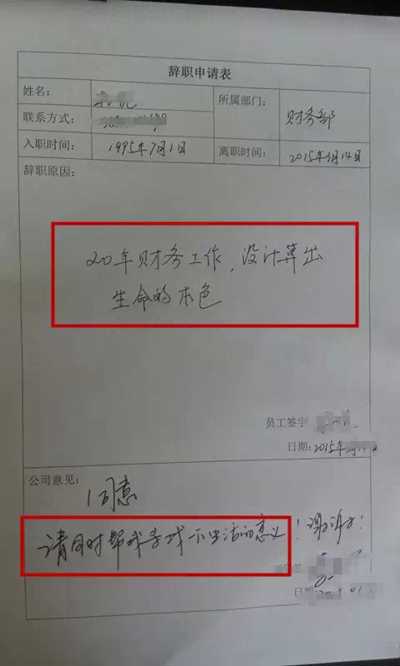 辞职申请表
姓名： 所属部门： 财务部
联系方式：
入职时间： 1995年7月1日 离职时间： 2015年5月14日
辞职原因：
20年财务工作，没计算出
生命的本色
员工签字
日期：2015年
公司意见：
同意
请同时帮我寻找一下生活的意义！谢谢！
日期